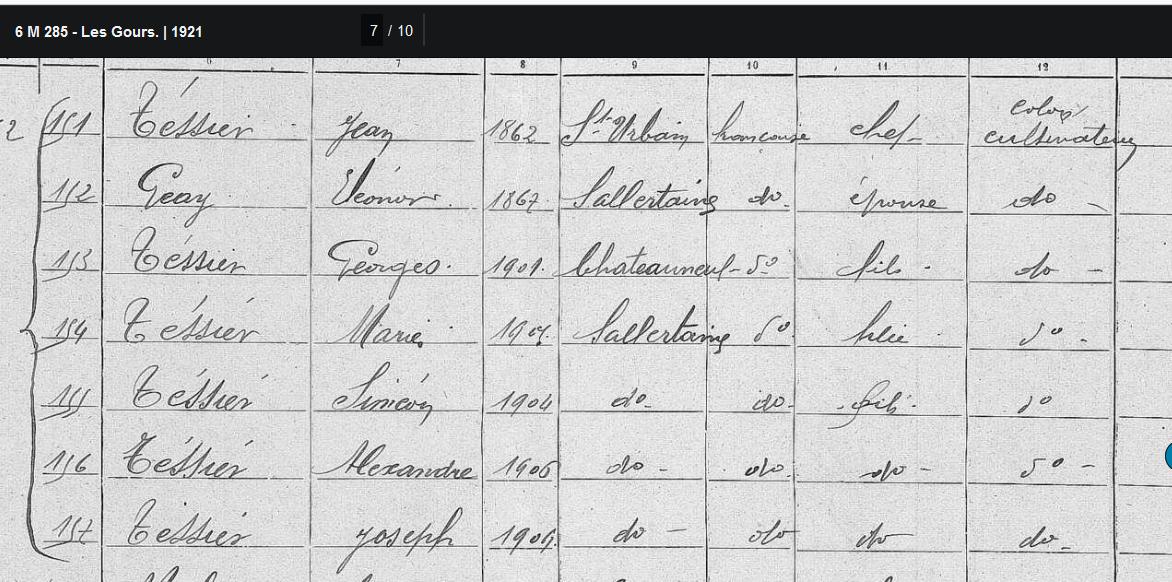 6 M 285 - Les Gours. | 1921 7 / 10
6 7 8 9 10 11 12
151 Téssier Jean 1862 St Urbain française chef colon cultivateur
152 Geay Eléonor 1867 Sallertaine do épouse do
153 Téssier Georges 1901 Chateauneuf do fils do
154 Téssier Marie Sallertaine do fille do
155 Téssier Siméon 1904 do do fils do
156 Téssier Alexandre 1906 do do do do
157 Téssier Joseph do do do do